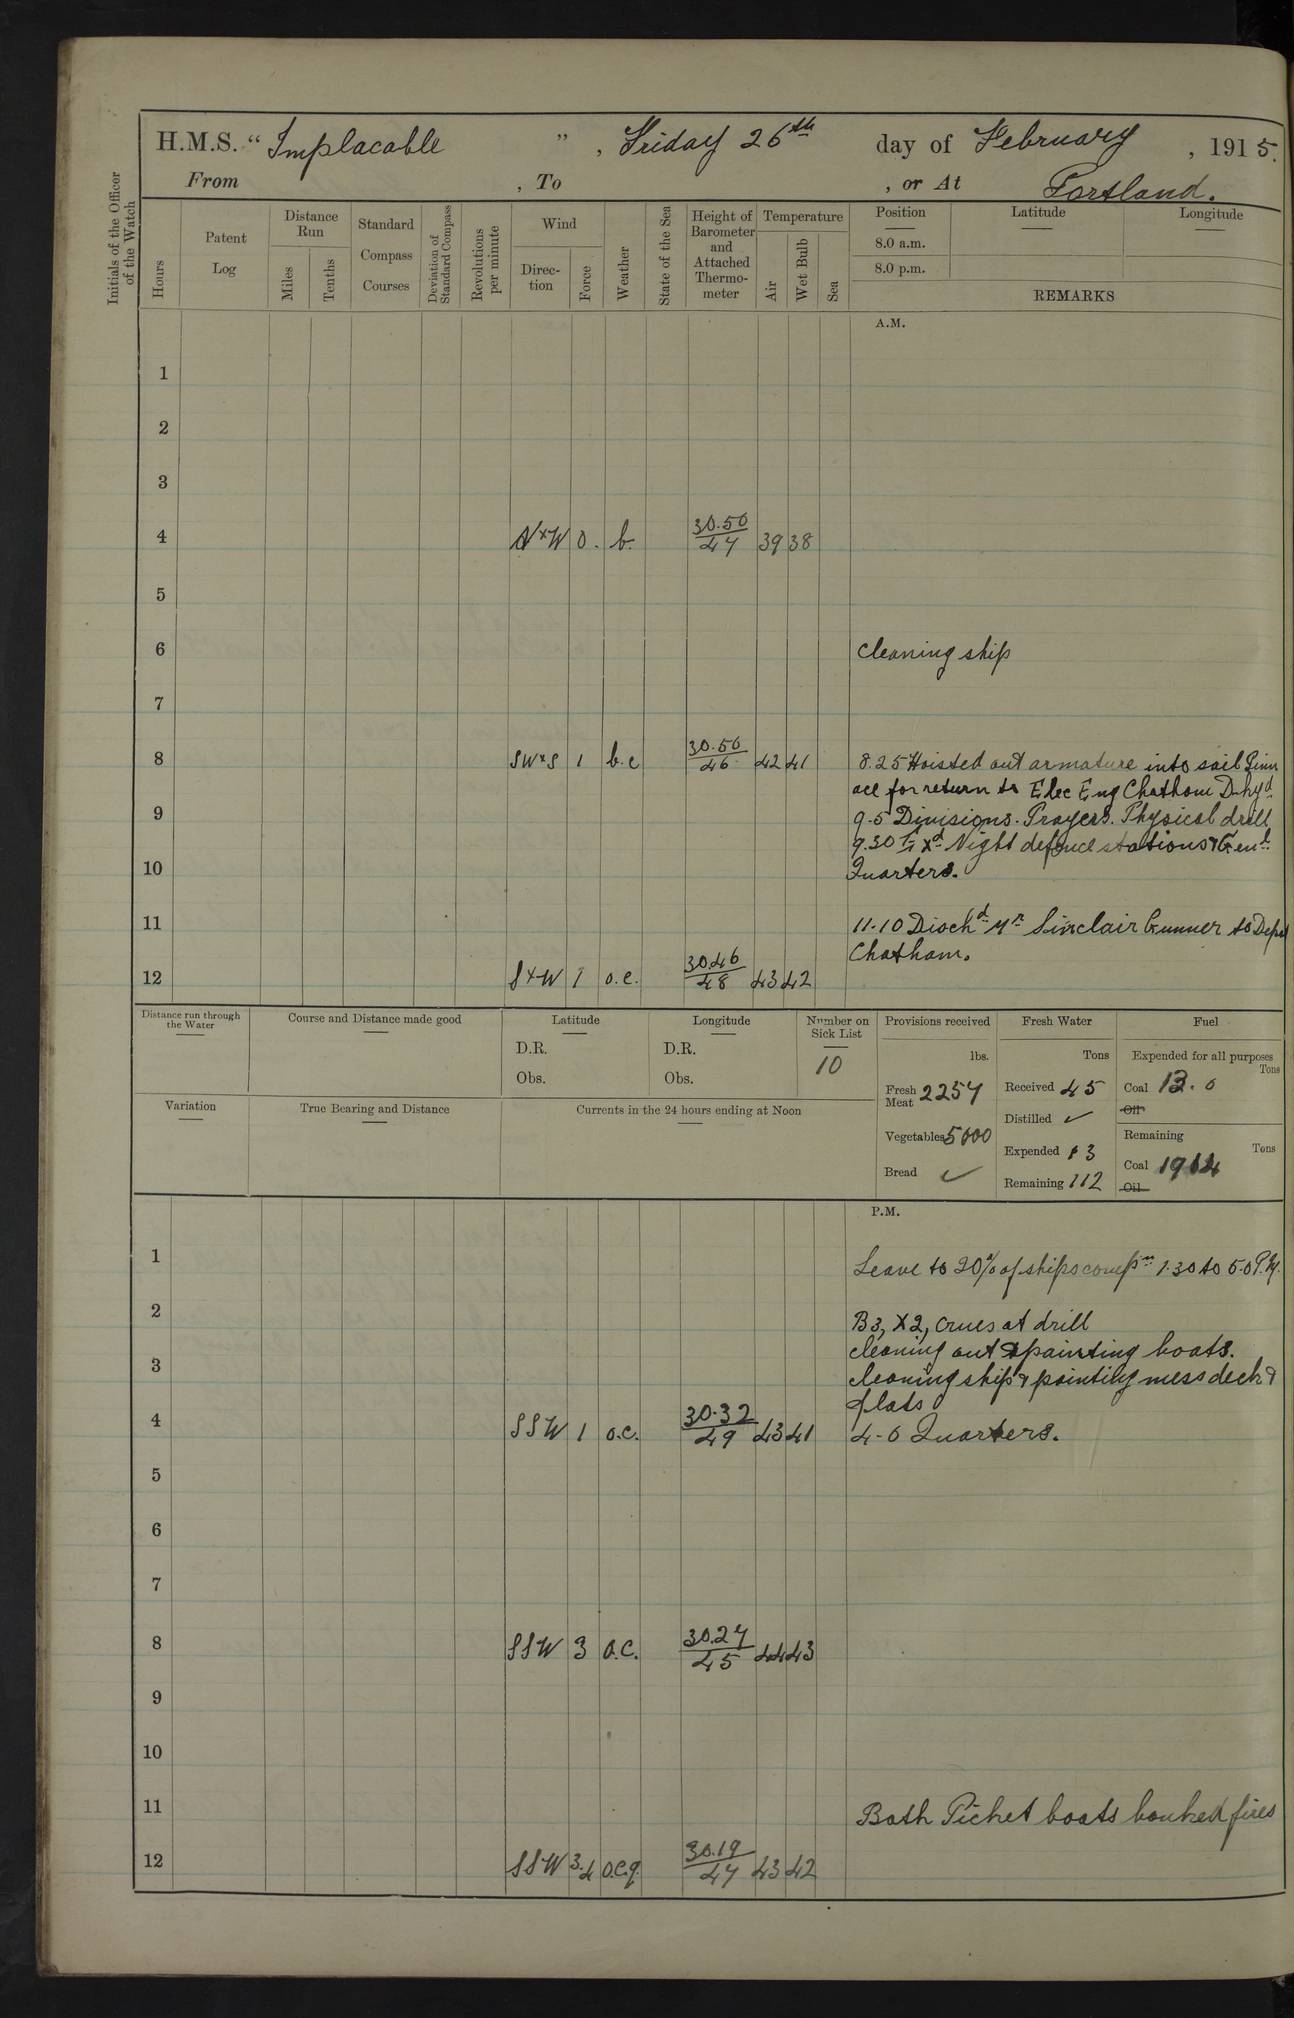 H.M.S. "Implacable", Friday 26th day of February, 1915.
From , To , or At Portland.
Initials of the Officer of the Watch
Hours
Patent Log
Distance Run
Miles
Tenths
Standard Compass Courses
Deviation of Standard Compass
Revolutions per minute
Wind
Direction
Force
Weather
State of the Sea
Height of Barometer and Attached Thermometer
Temperature
Air
Wet Bulb
Sea
Position Latitude Longitude
8.0 a.m.
8.0 p.m.
REMARKS
A.M.
1
2
3
4 NxW 0. b. 30.50/47 39 38
5
6 Cleaning ship
7
8 SWxS 1 b.c 30.50/46 42 41 8.25 Hoisted out armature into sail Pinn
ace for return to Elec Eng Chatham D-kyd
9 9-5 Divisions. Prayers. Physical drill
9.30 Exd Night defence stations & Genl
10 Quarters.
11 11-10 Dischd Mr Sinclair Gunner to Depot
Chatham.
12 SxW 1 o.c. 30.46/48 43 42
Distance run through the Water
Course and Distance made good
Latitude
D.R.
Obs.
Longitude
D.R.
Obs.
Number on Sick List
10
Provisions received
lbs.
Fresh Meat 2257
Vegetables 5000
Bread ✓
Fresh Water
Tons
Received 45
Distilled ✓
Expended 13
Remaining 112
Fuel
Expended for all purposes
Tons
Coal 13.0
Oil
Remaining
Tons
Coal 1914
Oil
Variation
True Bearing and Distance
Currents in the 24 hours ending at Noon
P.M.
1 Leave to 20% of ships compn 1.30 to 5.0 P.M.
2 B3, X2, crues at drill
cleaning out & painting boats.
3 cleaning ship & painting mess deck &
flats
4 SSW 1 o.c. 30.32/49 43 41 4-0 Quarters.
5
6
7
8 SSW 3 o.c. 30.27/45 44 43
9
10
11 Both Picket boats banked fires
12 SSW 3.4 o.c.q. 30.19/47 43 42